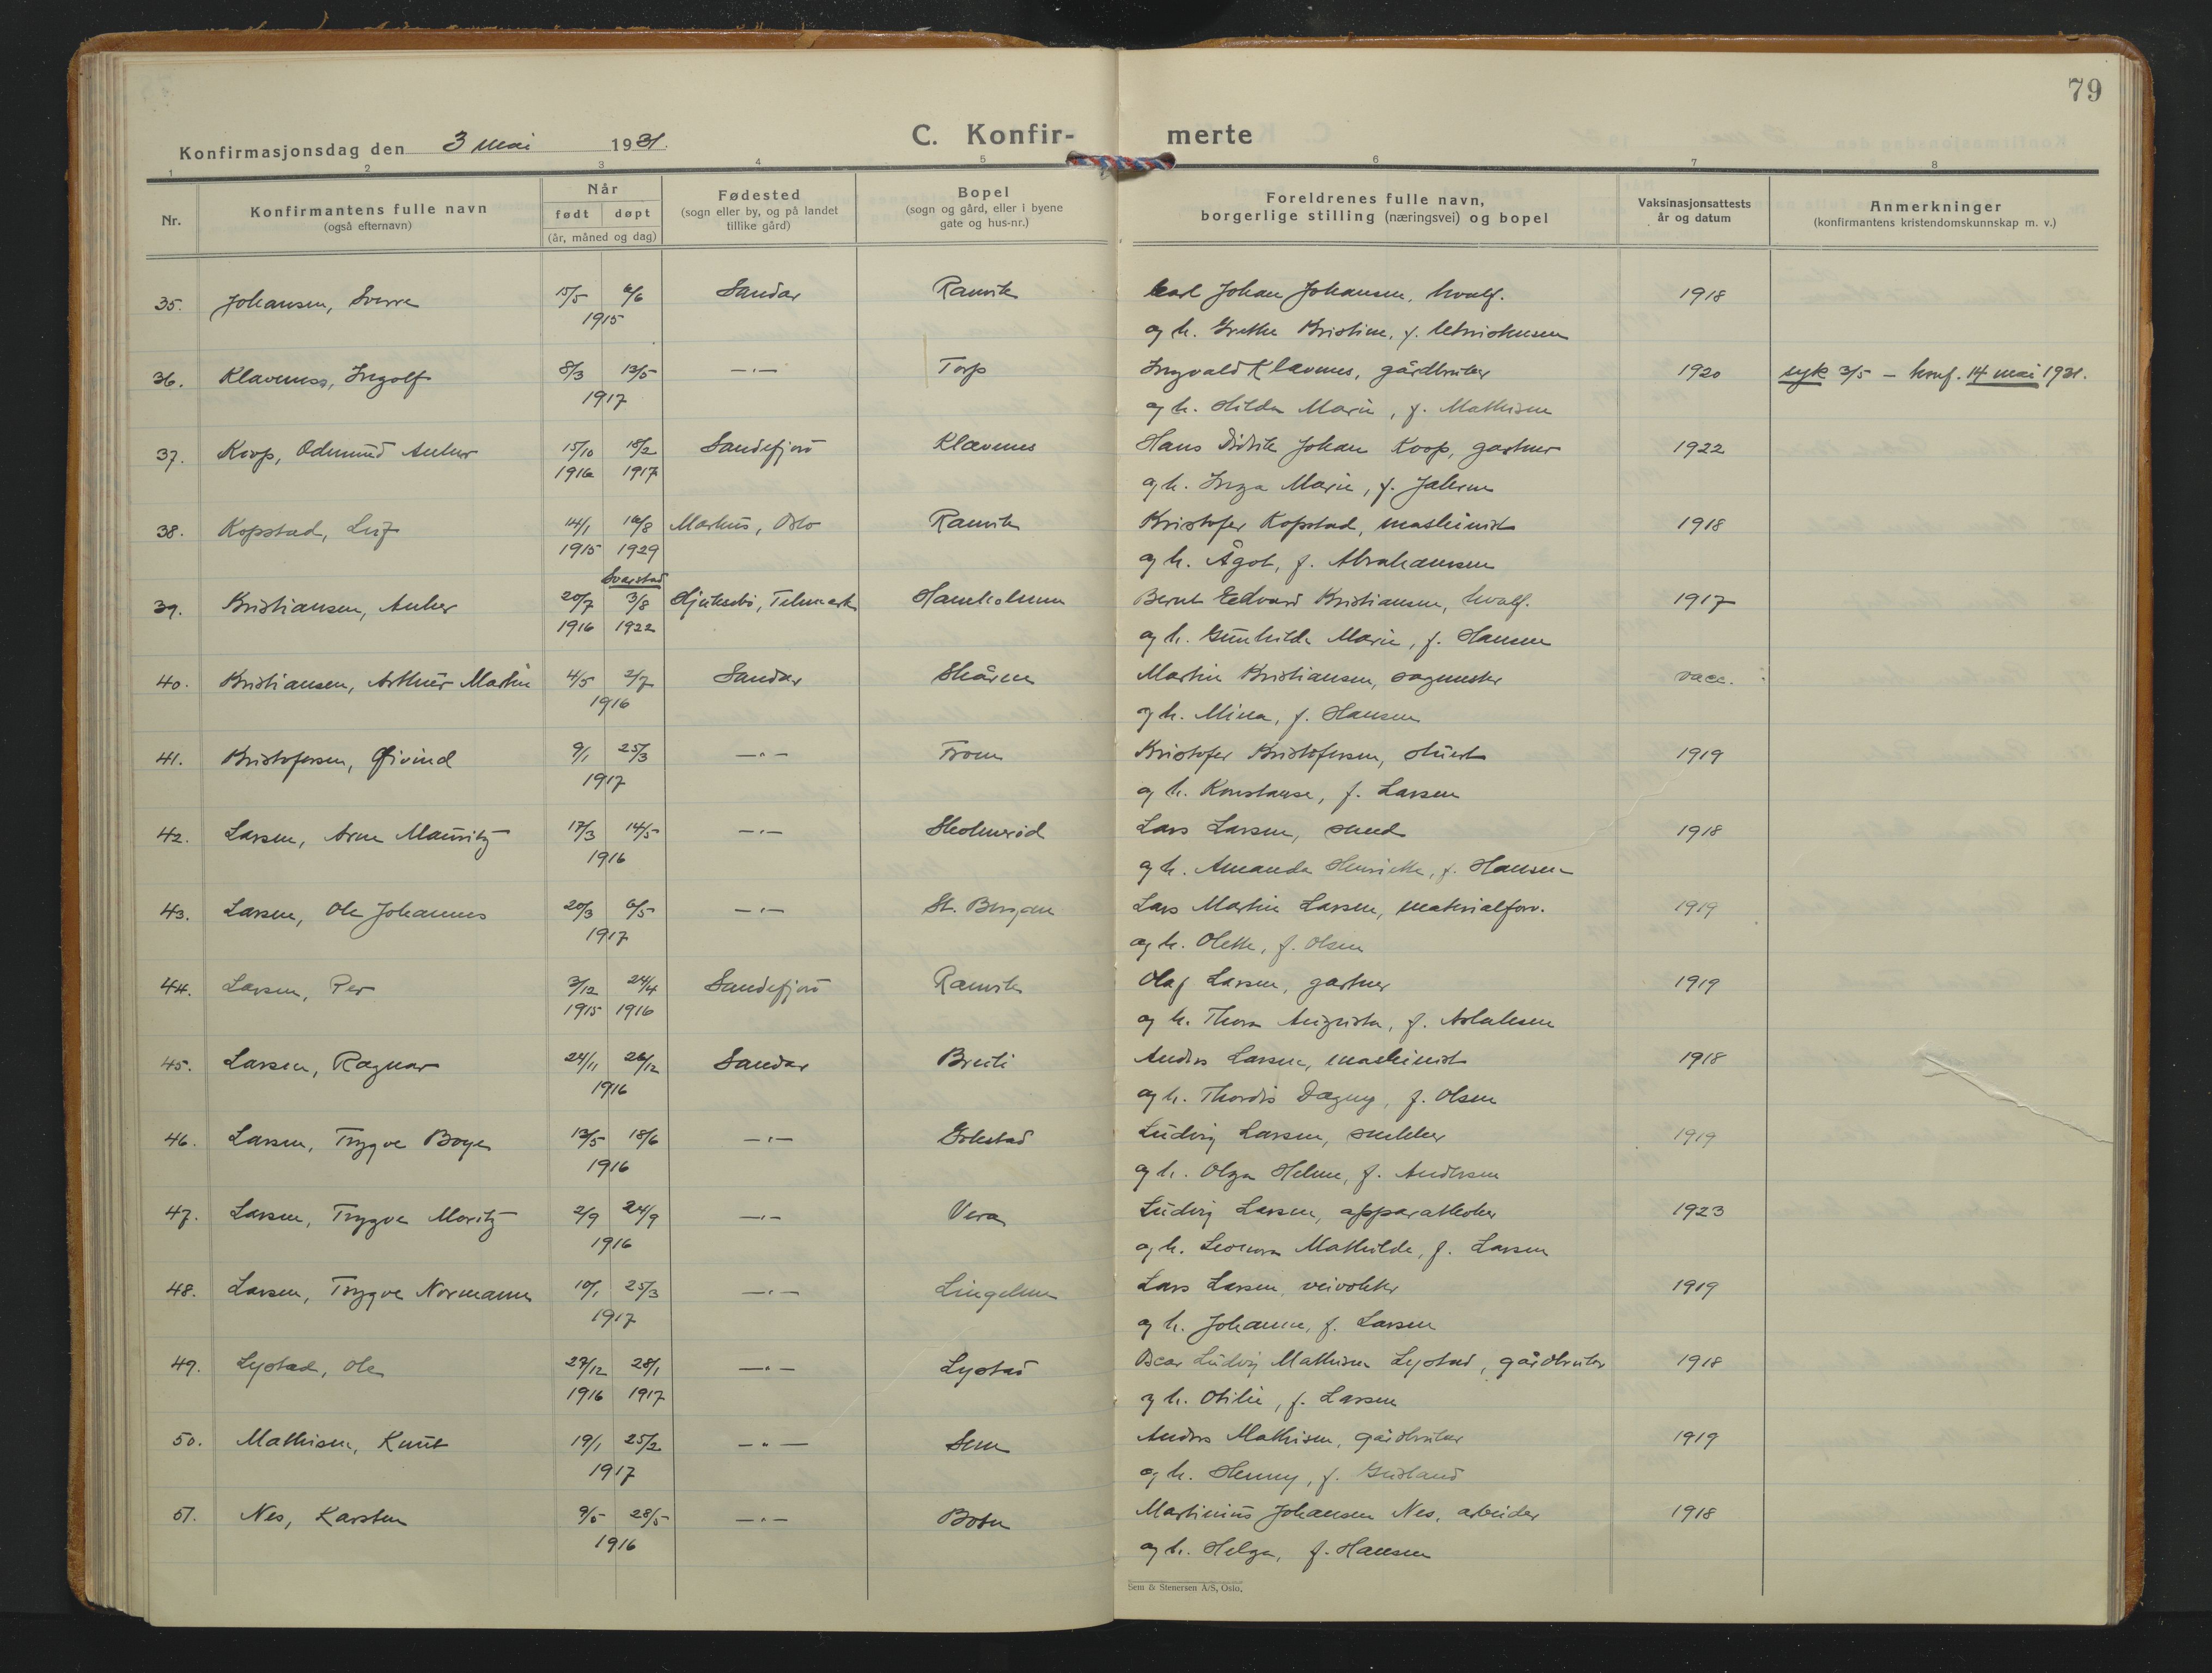 79
Konfirmasjonsdag den 3 mai 1931.
C. Konfir- merte
1 2 3 4 5 6 7 8
Nr.
Konfirmantens fulle navn
(også efternavn)
Når
født døpt
(år, måned og dag)
Fødested
(sogn eller by, og på landet
tillike gård)
Bopel
(sogn og gård, eller i byene
gate og hus-nr.)
Foreldrenes fulle navn,
borgerlige stilling (næringsvei) og bopel
Vaksinasjonsattests
år og datum
Anmerkninger
(konfirmantens kristendomskunnskap m. v.)
35. Johansen, Sverre 15/5 6/6 Sandar Ranvik Carl Johan Johansen, hvalf. 1918
1915 og h. Grethe Kristine, f. Christensen
36. Klaveness, Ingolf 8/3 13/5 —"— Torp Ingvald Klavenes, gårdbruker 1920 syk 3/5 – konf. 14 mai 1931.
1917 og h. Hilda Marie, f. Mathisen
37. Koop, Odmund Anker 15/10 18/2 Sandefjord Klavenes Hans Didrik Johan Koop, gartner 1922
1916 1917 og h. Inga Marie, f. Jahren
38. Kopstad, Leif 14/1 16/8 Markus, Oslo Ranvik Kristofer Kopstad, maskinist 1918
1915 1929 og h. Ågot, f. Abrahamsen
Svarstad
39. Kristiansen, Anker 20/7 3/8 Hjuksebø, Telemark Haneholmen Bernt Edvard Kristiansen, hvalf. 1917
1916 1922 og h. Gunhilda Marie, f. Hansen
40. Kristiansen, Arthur Martin 4/5 2/7 Sandar Skåren Martin Kristiansen, sagmester vacc.
1916 og h. Mina, f. Hansen
41. Kristofersen, Øivind 9/1 25/3 —"— From Kristofer Kristofersen, stuert 1919
1917 og h. Konstanse, f. Larsen
42. Larsen, Arne Mauritz 17/3 14/5 —"— Skolmerød Lars Larsen, smed 1918
1916 og h. Amanda Henriette, f. Hansen
43. Larsen, Ole Johannes 20/3 6/5 —"— St. Bergan Lars Martin Larsen, materialforv. 1919
1917 og h. Olette, f. Olsen
44. Larsen, Per 3/12 24/4 Sandefjord Ranvik Olaf Larsen, gartner 1919
1915 1916 og h. Thora Augusta, f. Aslaksen
45. Larsen, Ragnar 24/11 26/12 Sandar Breili Anders Larsen, maskinist 1918
1916 og h. Thordis Dagny, f. Olsen
46. Larsen, Trygve Boye 13/5 18/6 —"— Gokstad Ludvig Larsen, snekker 1919
1916 og h. Olga Helene, f. Andersen
47. Larsen, Trygve Moritz 2/9 24/9 —"— Vera Ludvig Larsen, apparatkoker 1923
1916 og h. Leonora Mathilde, f. Larsen
48. Larsen, Trygve Normann 10/1 25/3 —"— Lingelem Lars Larsen, veivokter 1919
1917 og h. Johanne, f. Larsen
49. Lystad, Ole 27/12 28/1 —"— Lystad Oscar Ludvig Mathisen Lystad, gårdbruker 1918
1916 1917 og h. Otilie, f. Larsen
50. Mathisen, Knut 19/1 25/2 —"— Sem Anders Mathisen, gårdbruker 1919
1917 og h. Henny, f.
51. Nes, Karsten 9/5 28/5 —"— Martinius Johansen Nes, arbeider 1918
1916 og h. Helga, f. Hansen
Sem & Stenersen A/S, Oslo.